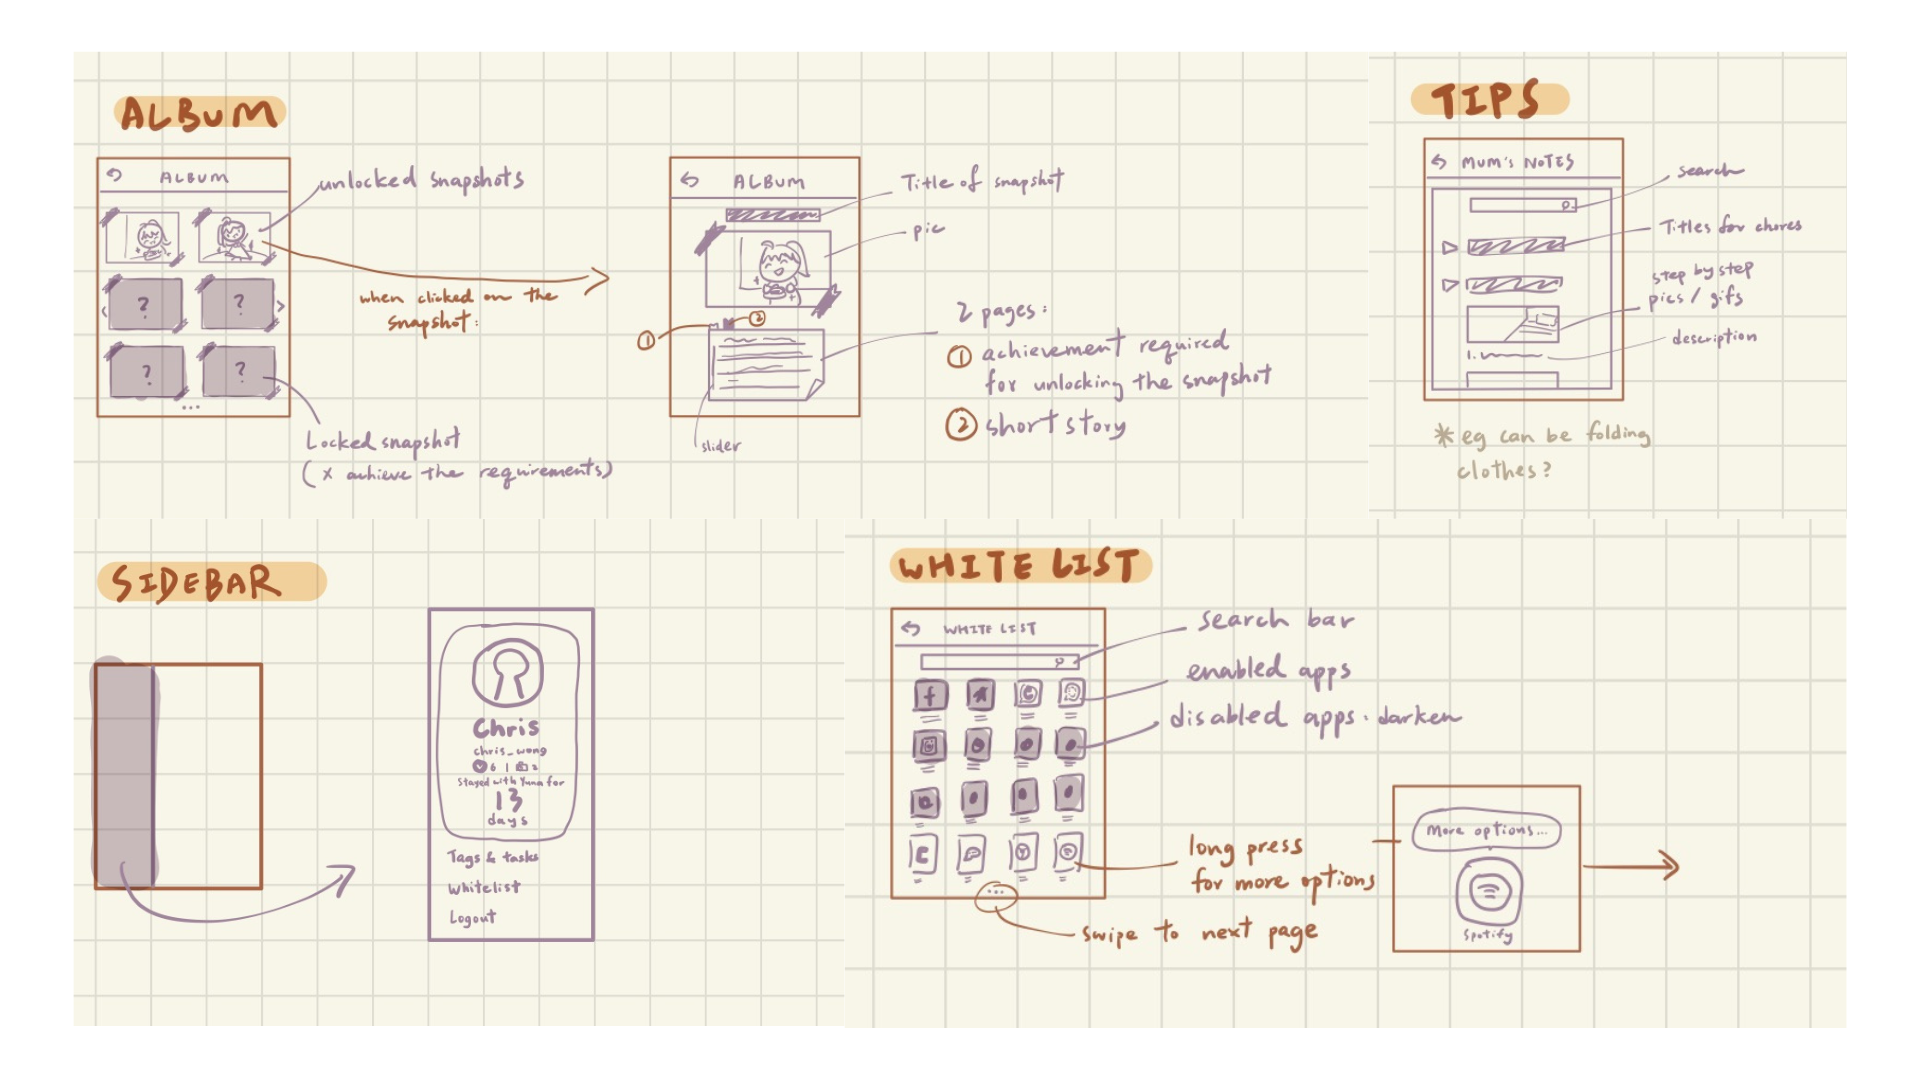 ALBUM
ALBUM
unlocked snapshots
?
?
?
?
...
when clicked on the
snapshot:
Locked snapshot
(x achieve the requirements)
ALBUM
Title of snapshot
pic
①
②
slider
2 pages:
① achievement required
for unlocking the snapshot
② short story
TIPS
MUM'S NOTES
search
Titles for chores
step by step
pics / gifs
1.
description
* eg can be folding
clothes?
SIDEBAR
Chris
chris_wong
6 | 2
Stayed with Yuna for
13
days
Tags & tasks
Whitelist
Logout
WHITE LIST
WHITE LIST
search bar
enabled apps
disabled apps: darken
f
...
long press
for more options
swipe to next page
More options...
Spotify